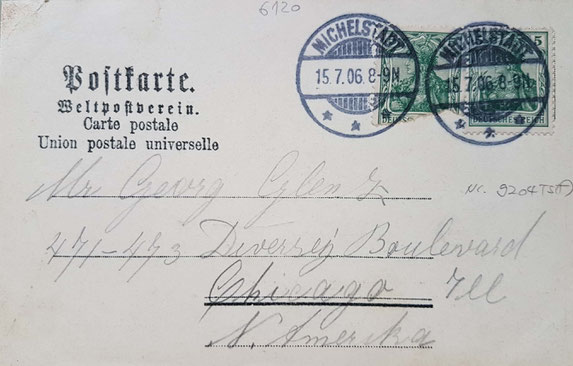 6120
MICHELSTADT
15.7.06.8-9N.
MICHELSTADT
15.7.06.8-9N.
5
DEUTSCHES REICH
Postkarte.
Weltpostverein.
Carte postale
Union postale universelle
Mr Georg Glenz
Nr. 9204
471-473 Diversey Boulevard
Chicago Ill
N. Amerika